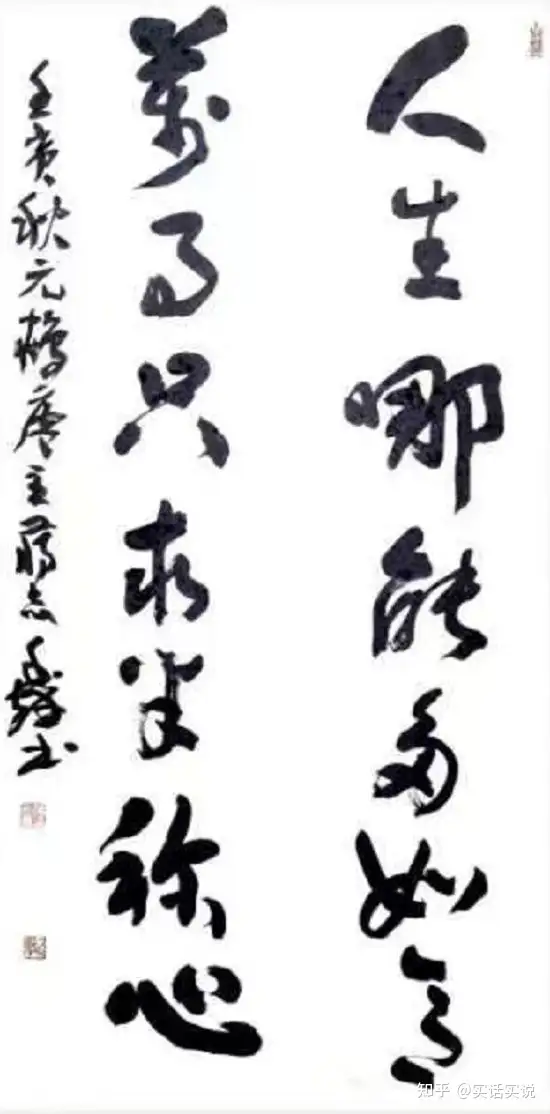 人生哪能多如意
萬事只求半称心
壬寅秋元鶴廬主蔣志
书
知乎 @实话实说